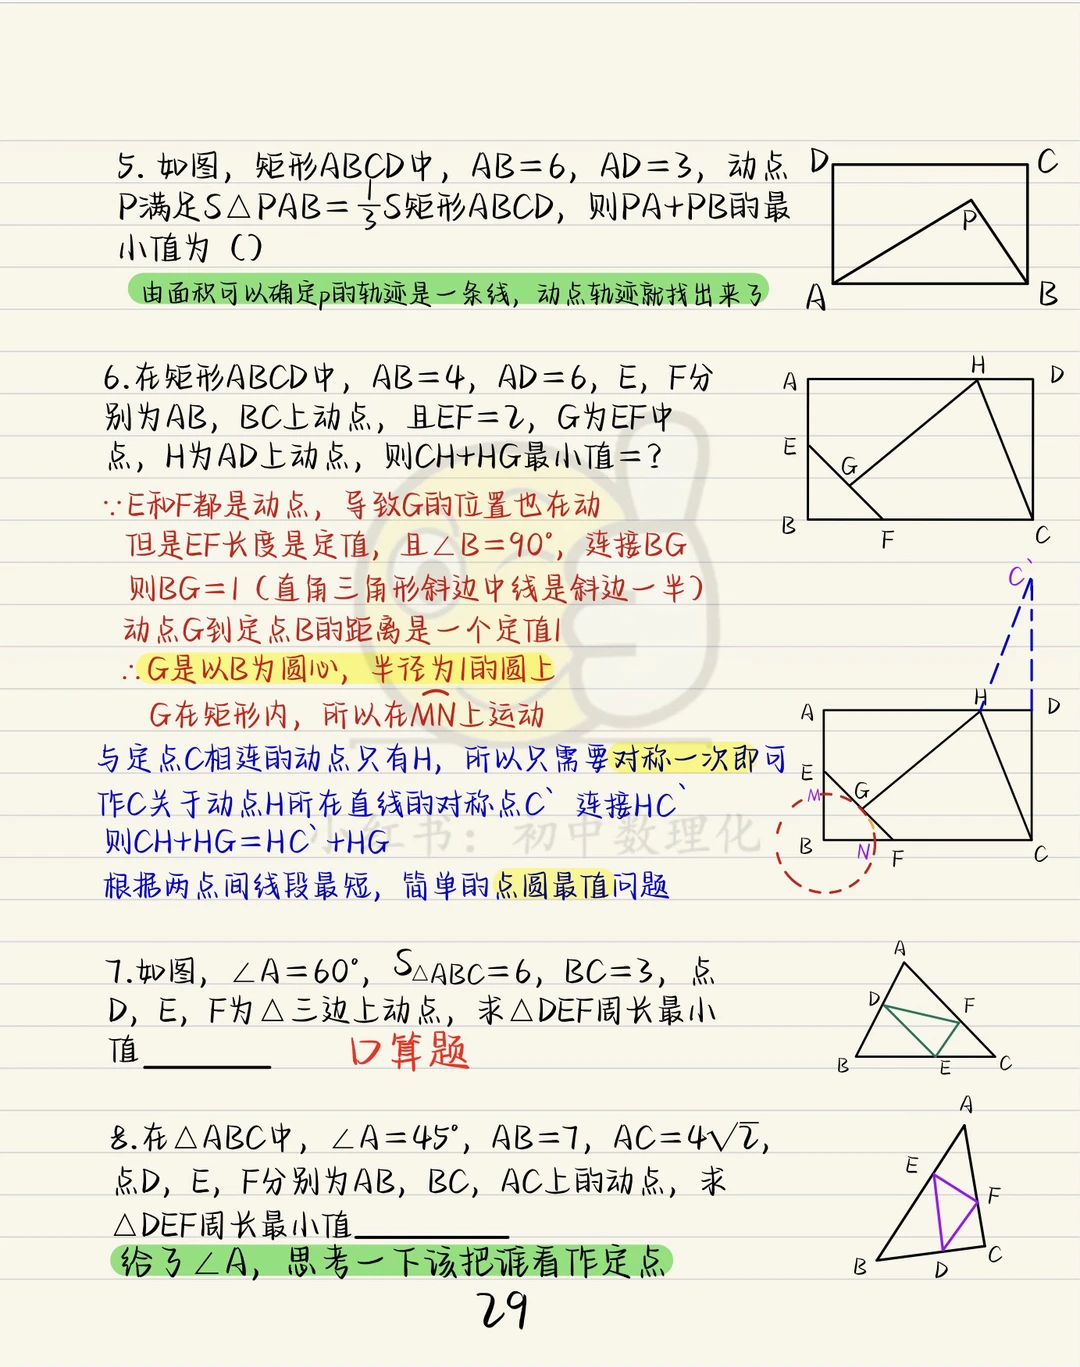 5. 如图，矩形ABCD中，AB=6，AD=3，动点
P满足S△PAB=1/3S矩形ABCD，则PA+PB的最
小值为（）
由面积可以确定p的轨迹是一条线，动点轨迹就找出来了
D
C
P
A
B
6.在矩形ABCD中，AB=4，AD=6，E，F分
别为AB，BC上动点，且EF=2，G为EF中
点，H为AD上动点，则CH+HG最小值=？
A
H
D
E
G
B
F
C
∵E和F都是动点，导致G的位置也在动
但是EF长度是定值，且∠B=90°，连接BG
则BG=1（直角三角形斜边中线是斜边一半）
动点G到定点B的距离是一个定值1
∴G是以B为圆心，半径为1的圆上
G在矩形内，所以在MN上运动
与定点C相连的动点只有H，所以只需要对称一次即可
作C关于动点H所在直线的对称点C` 连接HC`
则CH+HG=HC`+HG
根据两点间线段最短，简单的点圆最值问题
C`
A
H
D
E
M
G
B
N
F
C
小红书：初中数理化
7.如图，∠A=60°，S△ABC=6，BC=3，点
D，E，F为△三边上动点，求△DEF周长最小
值
口算题
A
D
F
B
E
C
8.在△ABC中，∠A=45°，AB=7，AC=4√2，
点D，E，F分别为AB，BC，AC上的动点，求
△DEF周长最小值
给了∠A，思考一下该把谁看作定点
A
E
F
B
D
C
29